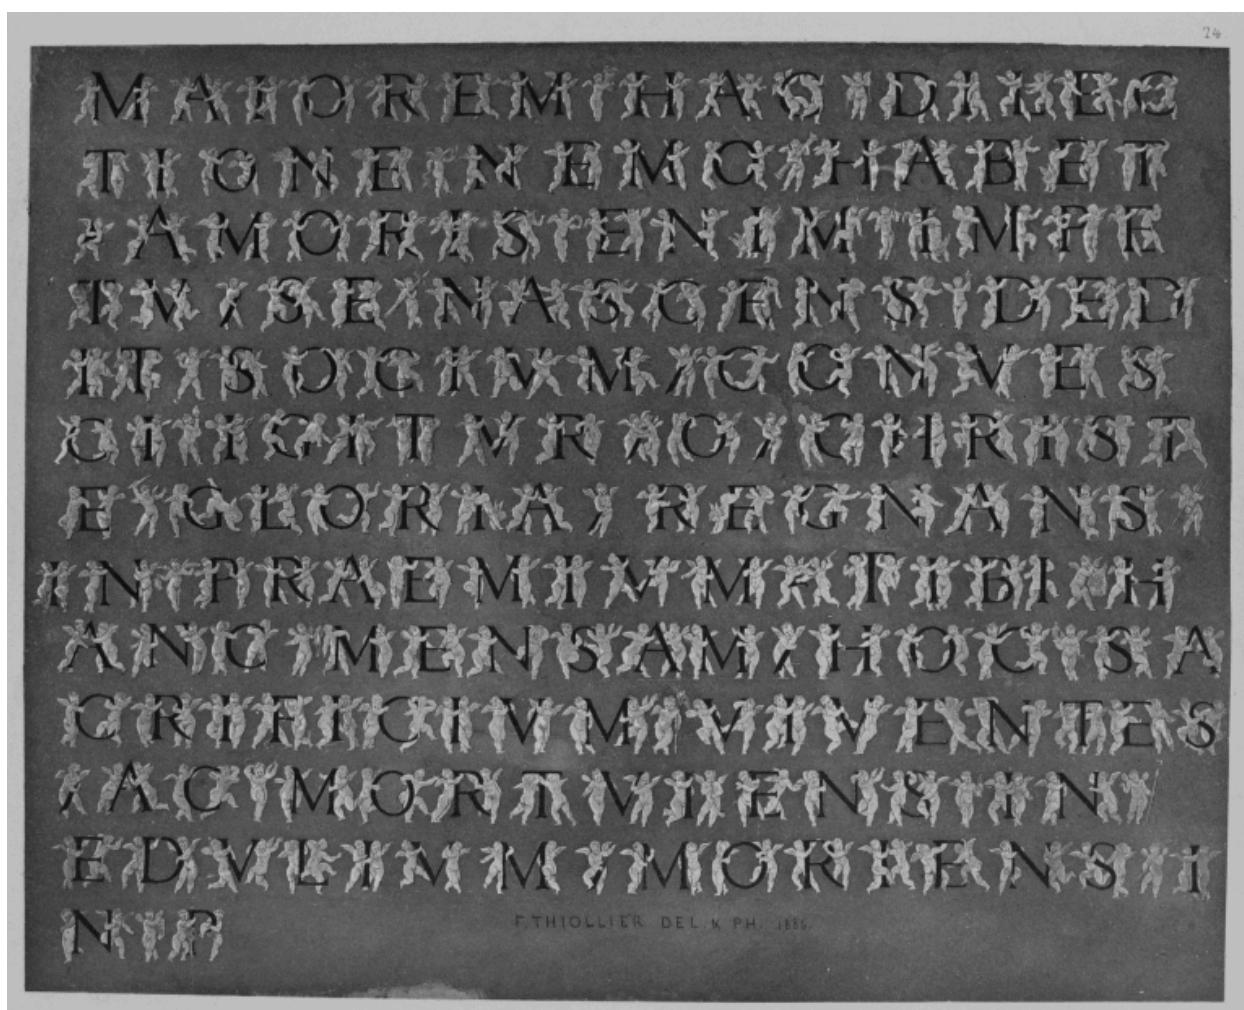 24
MAIOREM HAC DILEC
TIONE NEMO HABET
AMORIS ENIM IMPE
TV SE NASCENS DED
IT SOCIVM CONVES
CI IGITVR O CHRIST
E GLORIA REGNANS
IN PRAEMIVM TIBI H
ANC MENSAM HOC SA
CRIFICIVM VIVENTES
AC MORTVI ENS IN
EDVLIVM MORIENS I
N P
F. THIOLLIER DEL. & PH.